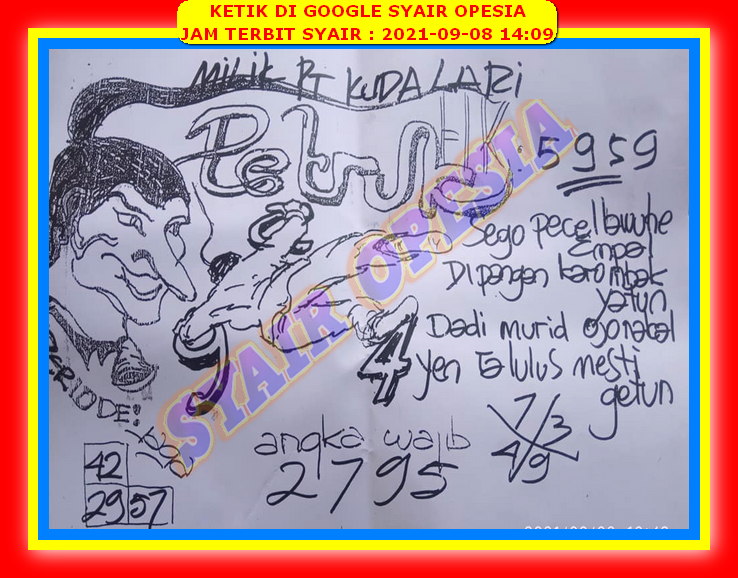 KETIK DI GOOGLE SYAIR OPESIA
JAM TERBIT SYAIR : 2021-09-08 14:09
MILIK PT KUDA LARI
5959
SYAIR OPESIA
Sego pecel lawuhe
Empal
Dipangan karo mbak
Yatun
Dadi murid ojo nakal
4
yen Ta lulus mesti
getun
PERIODE:
7/3
4 9
angka wajib
2795
42
29 57